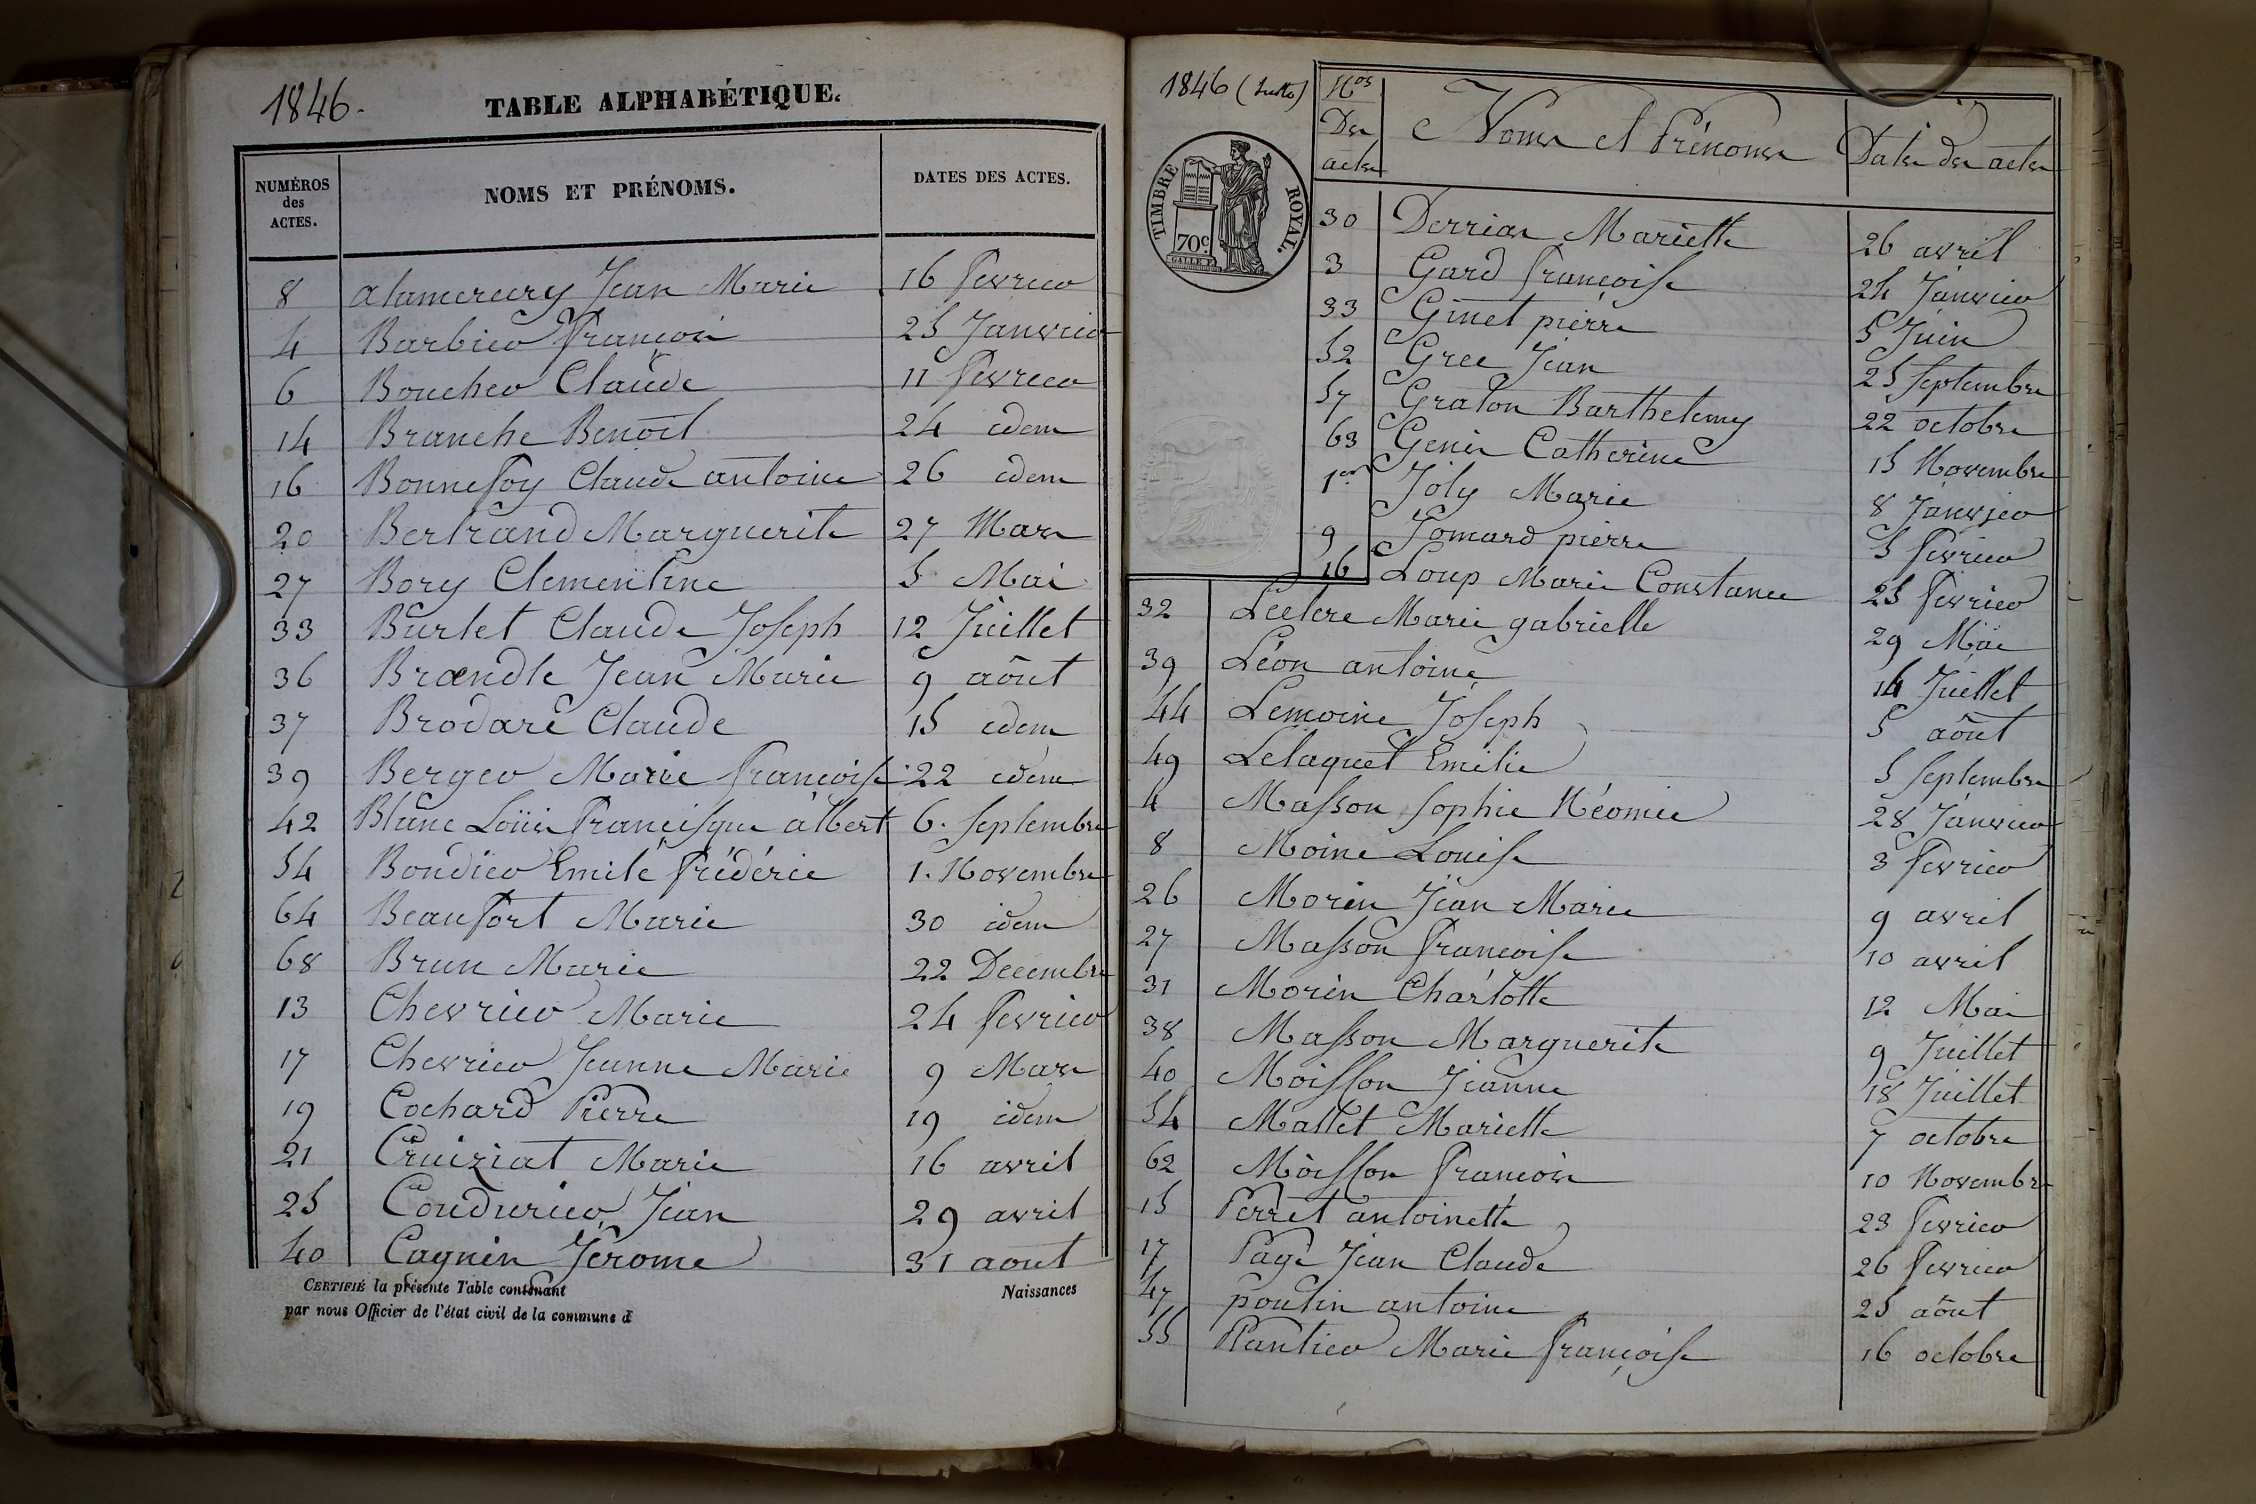 1846.
TABLE ALPHABÉTIQUE.
NUMÉROS
des
ACTES.
NOMS ET PRÉNOMS.
DATES DES ACTES.
8 alamercery Jean Marie 16 fevrier
4 Barbier françois 25 Janvier
6 Boucher Claude 11 fevrier
14 Branche Benoit 24 idem
16 Bonnefoy Claude antoine 26 idem
20 Bertrand Marguerite 27 Mars
27 Bory Clementine 5 Mai
33 Burlet Claude Joseph 12 Juillet
36 Brœndle Jean Marie 9 août
37 Brodare Claude 15 idem
39 Berger Marie françoise 22 idem
42 Blanc Louis francisque albert 6. Septembre
54 Boudier Emile frédéric 1. Novembre
64 Beaufort Marie 30 idem
68 Brun Marie 22 Decembre
13 Chevrier Marie 24 fevrier
17 Chevrier Jeanne Marie 9 Mars
19 Cochard Pierre 19 idem
21 Cruiziat Marie 16 avril
25 Coudurier Jean 29 avril
40 Cagnin Jérome 31 aout
CERTIFIÉ la présente Table contenant Naissances
par nous Officier de l'état civil de la commune d
1846 (suite)
TIMBRE ROYAL.
70c.
GALLE F.
Nos
Des
actes
Noms et Prénoms
Dates des actes
30 Derrias Mariette 26 avril
3 Gard françoise 24 Janvier
33 Ginet pierre 5 Juin
52 Gree Jean 25 Septembre
57 Graton Barthelemy 22 octobre
63 Genis Catherine 15 Novembre
1er Joly Marie 8 Janvier
9 Jomard pierre 5 fevrier
16 Loup Marie Constance 25 fevrier
32 Leclere Marie gabrielle 29 Mai
39 Léon antoine 14 Juillet
44 Lemoine Joseph 5 août
49 Lelaquet Emilie 5 Septembre
4 Masson Sophie Néomie 28 Janvier
8 Moine Louise 3 fevrier
26 Morin Jean Marie 9 avril
27 Masson francoise 10 avril
31 Morin Charlotte 12 Mai
38 Masson Marguerite 9 Juillet
40 Moisson Jeanne 18 Juillet
54 Mallet Mariette 7 octobre
62 Moisson francois 10 Novembre
15 Perret antoinette 23 fevrier
17 Page Jean Claude 26 fevrier
47 poulin antoine 25 août
55 Plantier Marie françoise 16 octobre